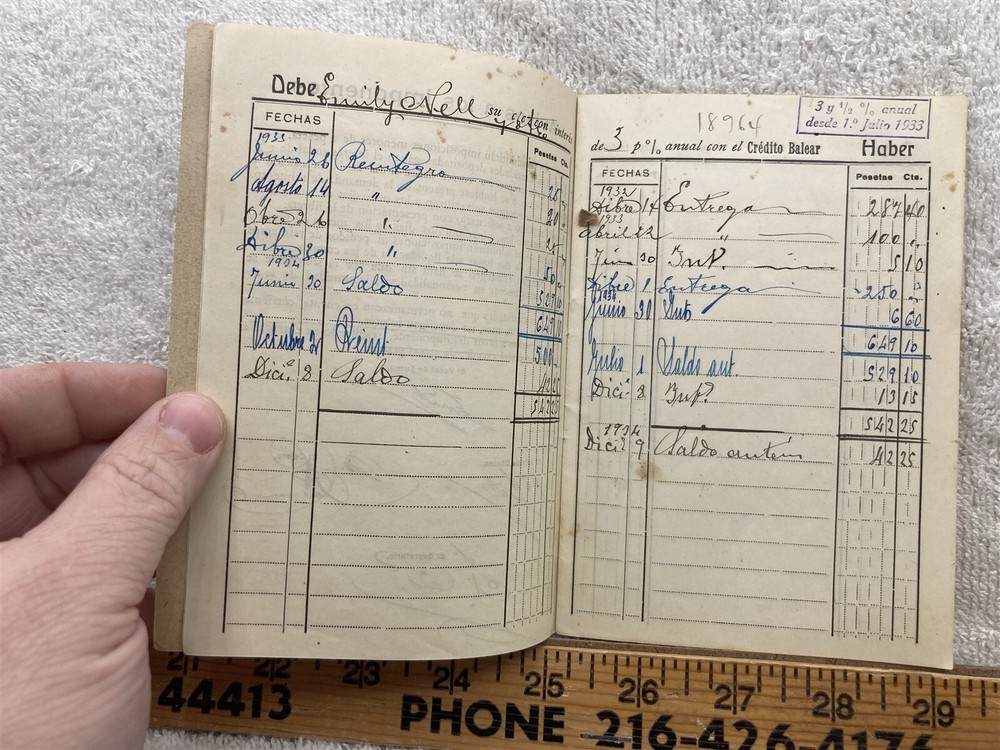 Debe Emily Nell su cta con interés
FECHAS
Pesetas Cts.
1933
Junio 26 Reintegro 25
Agosto 14 " 20
Obre 26 " 25
Dibre 30 " 50
1934
Junio 30 Saldo 529 10
649 10
Octubre Reint 500
Dici. 8 Saldo 42 25
542 25
18964
3 y ½ % anual
desde 1.º Julio 1933
de 3 p % anual con el Crédito Balear Haber
FECHAS
Pesetas Cts.
1932
Dibre 14 Entrega 287 40
1933
Abril 22 " 100 "
Jun 30 Int. 5 10
Dibre 1 Entrega 250
1934
Junio 30 Ints 6 60
649 10
Julio 1 Saldo ant. 529 10
Dici. 8 Int. 13 15
542 25
1934
Dici. 9 Saldo anterir 42 25
21 22 23 24 25 26 27 28 29
44413 PHONE 216-426-4176